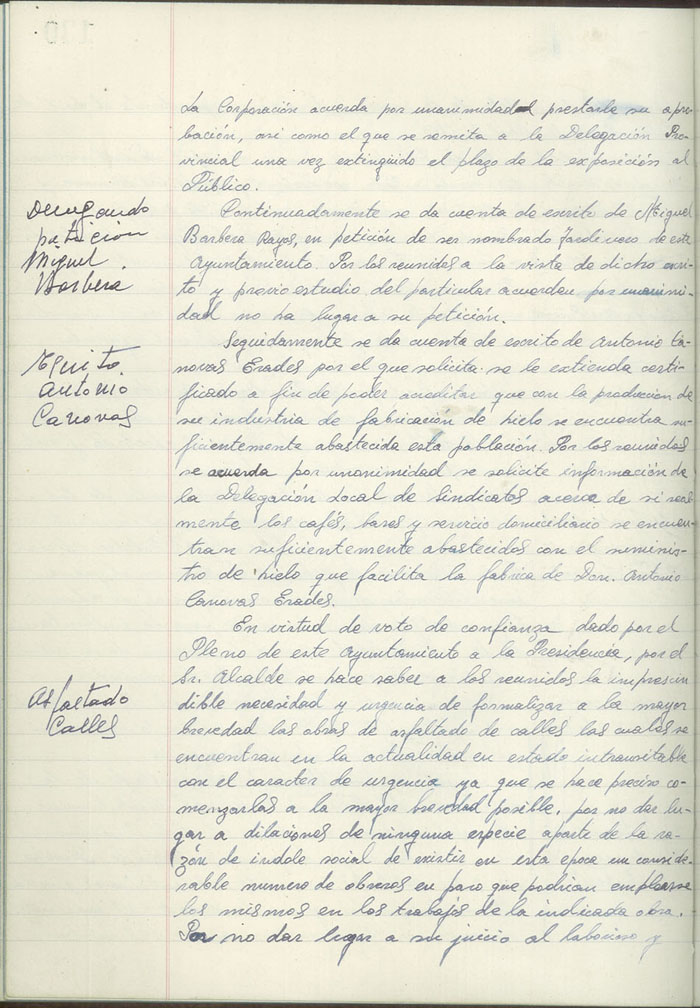 La Corporación acuerda por unanimidad prestarle su apro-
bación, asi como el que se remita a la Delegación Pro-
vincial una vez extinguido el plazo de la exposición al
Público.
Denegando
petición
Miguel
Barberá
Continuadamente se da cuenta de escrito de Miguel
Barbera Payos, en petición de ser nombrado Jardinero de este
Ayuntamiento. Por los reunidos a la vista de dicho escri-
to y previo estudio del particular acuerdan por unanimi-
dad no ha lugar a su petición.
Escrito
Antonio
Canovas
Seguidamente se da cuenta de escrito de Antonio Cá-
novas Erades por el que solicita se le extienda certi-
ficado a fin de poder acreditar que con la producion de
su industria de fabricación de hielo se encuentra su-
ficientemente abastecida esta población. Por los reunidos
se acuerda por unanimidad se solicite información de
la Delegación Local de Sindicatos acerca de si real-
mente los cafés, bares y servicio domiciliario se encuen-
tran suficientemente abastecidos con el suminis-
tro de hielo que facilita la fabrica de Don. Antonio
Canovas Erades.
Asfaltado
Calles
En virtud de voto de confianza dado por el
Pleno de este Ayuntamiento a la Presidencia, por el
Sr. Alcalde se hace saber a los reunidos la imprescin
dible necesidad y urgencia de formalizar a la mayor
brevedad las obras de asfaltado de calles las cuales se
encuentran en la actualidad en estado intransitable
con el caracter de urgencia ya que se hace preciso co-
menzarlas a la mayor brevedad posible, por no dar lu-
gar a dilaciones de ninguna especie aparte de la ra-
zón de indole social de existir en esta epoca un conside-
rable numero de obreros en paro que podrian emplearse
los mismos en los trabajos de la indicada obra.
Por no dar lugar a su juicio al laborioso y